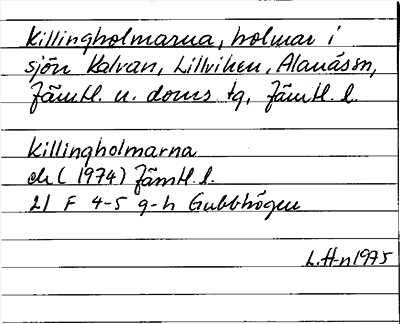 Killingholmarna, holmar i
sjön Kalvan, Lillviken, Alanäs sn,
Jämtl. n. doms tg, Jämtl. l.
Killingholmarna
ek ( 1974) Jämtl. l.
21 F 4-5 g-h Gubbhögen
L. H-n 1975